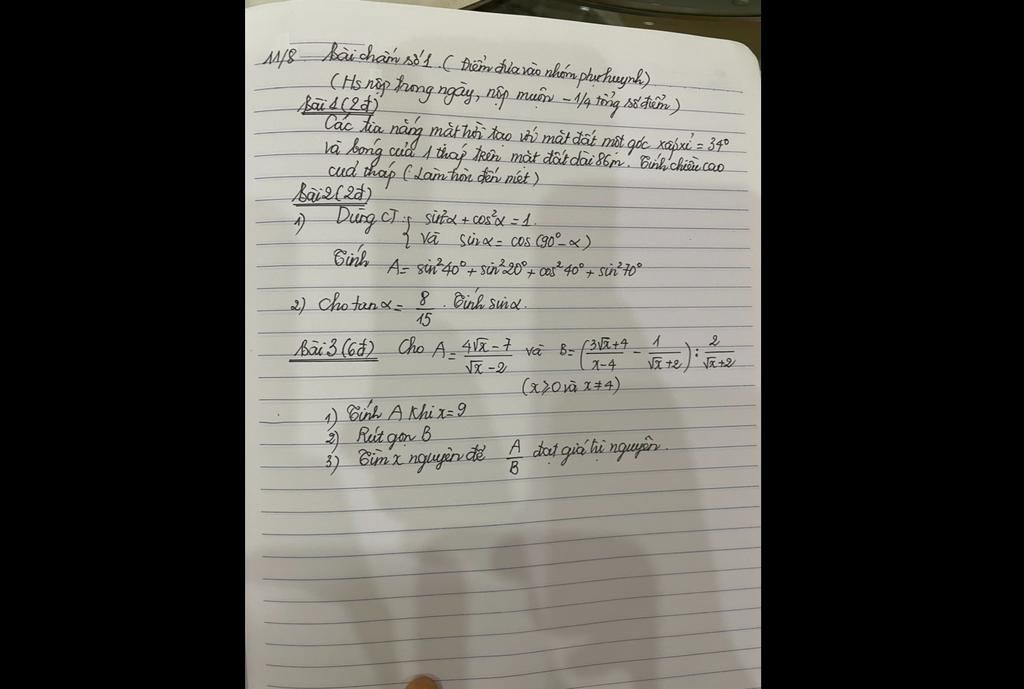 11/8. Bài chấm số 1. ( Điểm đưa vào nhóm phụ huynh)
( Hs nộp trong ngày, nộp muộn - 1/4 tổng số điểm )
Bài 1 (2đ)
Các tia nắng mặt trời tạo với mặt đất một góc xấp xỉ = 34°
và bóng của 1 tháp trên mặt đất dài 86m. Tính chiều cao
của tháp ( Làm tròn đến mét )
Bài 2 (2đ)
1) Dùng CT { sin²α + cos²α = 1.
và sinα = cos (90° - α)
Tính A = sin²40° + sin²20° + cos²40° + sin²70°
2) Cho tan α = 8/15 . Tính sin α.
Bài 3 (6đ) Cho A = (4√x - 7)/(√x - 2) và B = ( (3√x + 4)/(x - 4) - 1/(√x + 2) ) : 2/(√x + 2)
( x ≥ 0 và x ≠ 4 )
1) Tính A khi x = 9
2) Rút gọn B
3) Tìm x nguyên để A/B đạt giá trị nguyên.